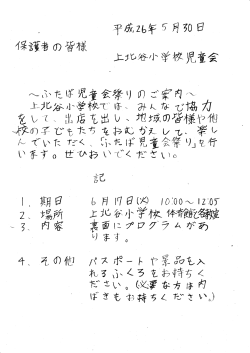 平成26年5月30日
保護者の皆様
上北谷小学校児童会
～ふたば児童会祭りのご案内～
上北谷小学校では、みんなで協力
をして、出店を出し、地域の皆様や他
校の子どもたちをおむかえして、楽し
んでいただく、「ふたば児童会祭り」を行
います。ぜひおいでください。
記
1. 期日 6月17日(火) 10:00～12:05
2. 場所 上北谷小学校 体育館と各教室
3. 内容 裏面にプログラムがあ
ります。
4. その他 パスポートや景品を入
れるふくろをお持ちく
ださい。(必要な方は内
ばきもお持ちください。)